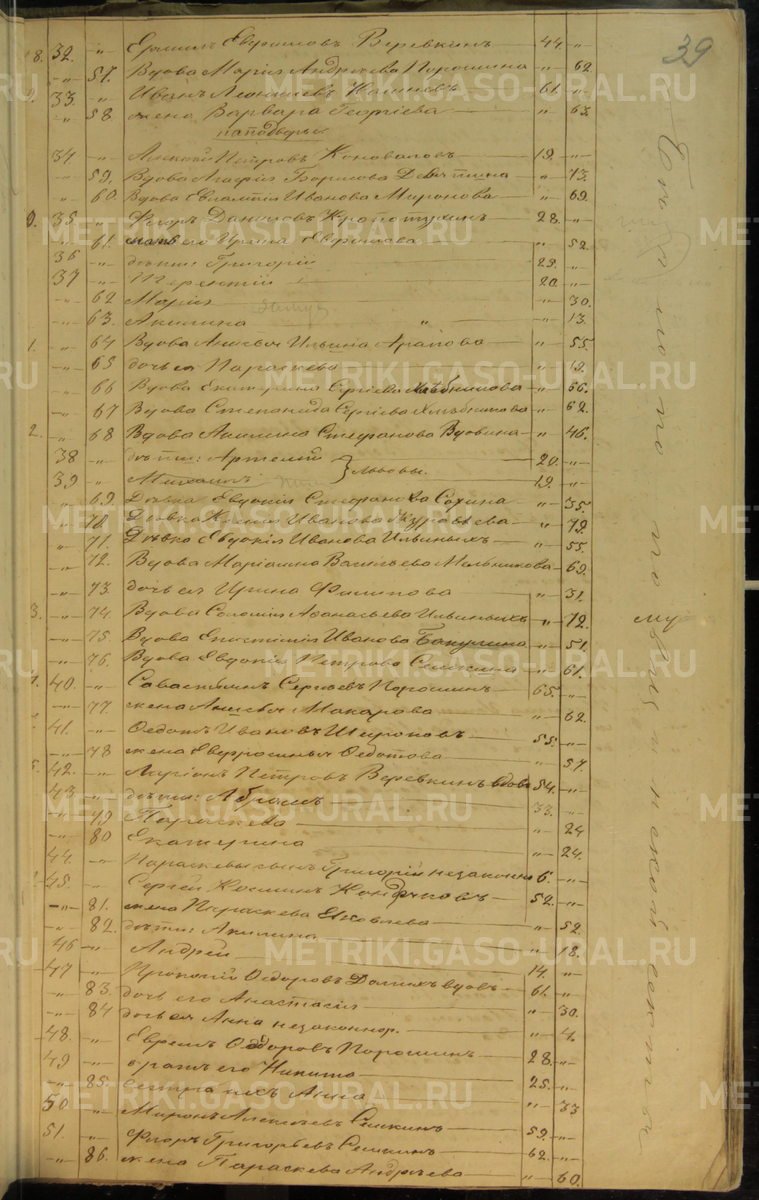 39
8. 32. " Ермилъ Евфимовъ Веревкинъ 44 "
" 57. Вдова Марія Андреева Порошина " 62
33 " Иванъ Леонтьевъ 61. "
" 58 жена Варвара Георгіева " 63.
34 " Алексей Петровъ Коноваловъ 19. "
" 59. Вдова Агафія Борисова " 73.
" 60. Вдова Евлампія Иванова Миронова " 69.
0. 35 " Флоръ Даниловъ 28. "
" 61. мать его Ирина Евфимова " 52.
36 " дѣти: Григорій 23. "
37 " Терентій 20. "
" 62 Марія " 30.
" 63. Акилина " 13.
1. " 64 Вдова Анисья Ильина Арапова " 55
" 65 дочь ея Параскева " 19.
" 66 Вдова Екатерина Сергіева Хлѣбникова " 66.
" 67 Вдова Степанида Сергіева Хлѣбникова " 62.
2. " 68 Вдова Акилина Стефанова Вдовина " 46.
38 " дѣти: Артемій } Львовы. 20. "
39 " Михаилъ 19. "
" 69. Дѣвка Евдокія Стефанова Сохина " 35.
" 70. Дѣвка Ксенія Иванова Журавлева " 79.
" 71. Дѣвка Евдокія Иванова Ильиныхъ " 55.
" 72. Вдова Маріамна Васильева Мельникова " 69.
" 73. дочь ея Ирина Филипова " 31.
3. " 74. Вдова Соломія Афанасьева Ильиныхъ " 72.
" 75. Вдова Епистимія Иванова Бакулина " 51.
" 76. Вдова Евдокія Петрова Сѣмкина " 61.
40. " Савастьянъ Сергѣевъ Порошинъ 65. "
" 77. жена Анисья Макарова " 62.
41. " Федотъ Ивановъ Широковъ 55. "
" 78 жена Евфросинья Федотова " 57.
5. 42. " Ларіонъ Петровъ Веревкинъ вдовъ 54. "
43. " дѣти: Абрамъ 33. "
" 79. Параскева " 24
" 80 Екатерина " 24.
44. " Параскевы сынъ Григорій незаконно 6. "
45. " Сергѣй Косминъ Кондаковъ 52. "
" 81. жена Параскева Яковлева " 52.
" 82. дѣти: Акилина " 18.
46 " Андрей 14. "
47 " Прокопій Федоровъ вдовъ 61. "
" 83. дочь его Анастасія " 30.
" 84 дочь ея Анна незаконнор. " 4.
48. " Ефремъ Федоровъ Порошинъ 28. "
49 " братъ его Никита 25. "
" 85. сестра ихъ Анна " 33
50. " Миронъ Алексѣевъ Сѣмкинъ 59. "
51. " Флоръ Григорьевъ Сѣмкинъ 62. "
" 86. жена Параскева Андрѣева " 60.
METRIKI.GASO-URAL.RU